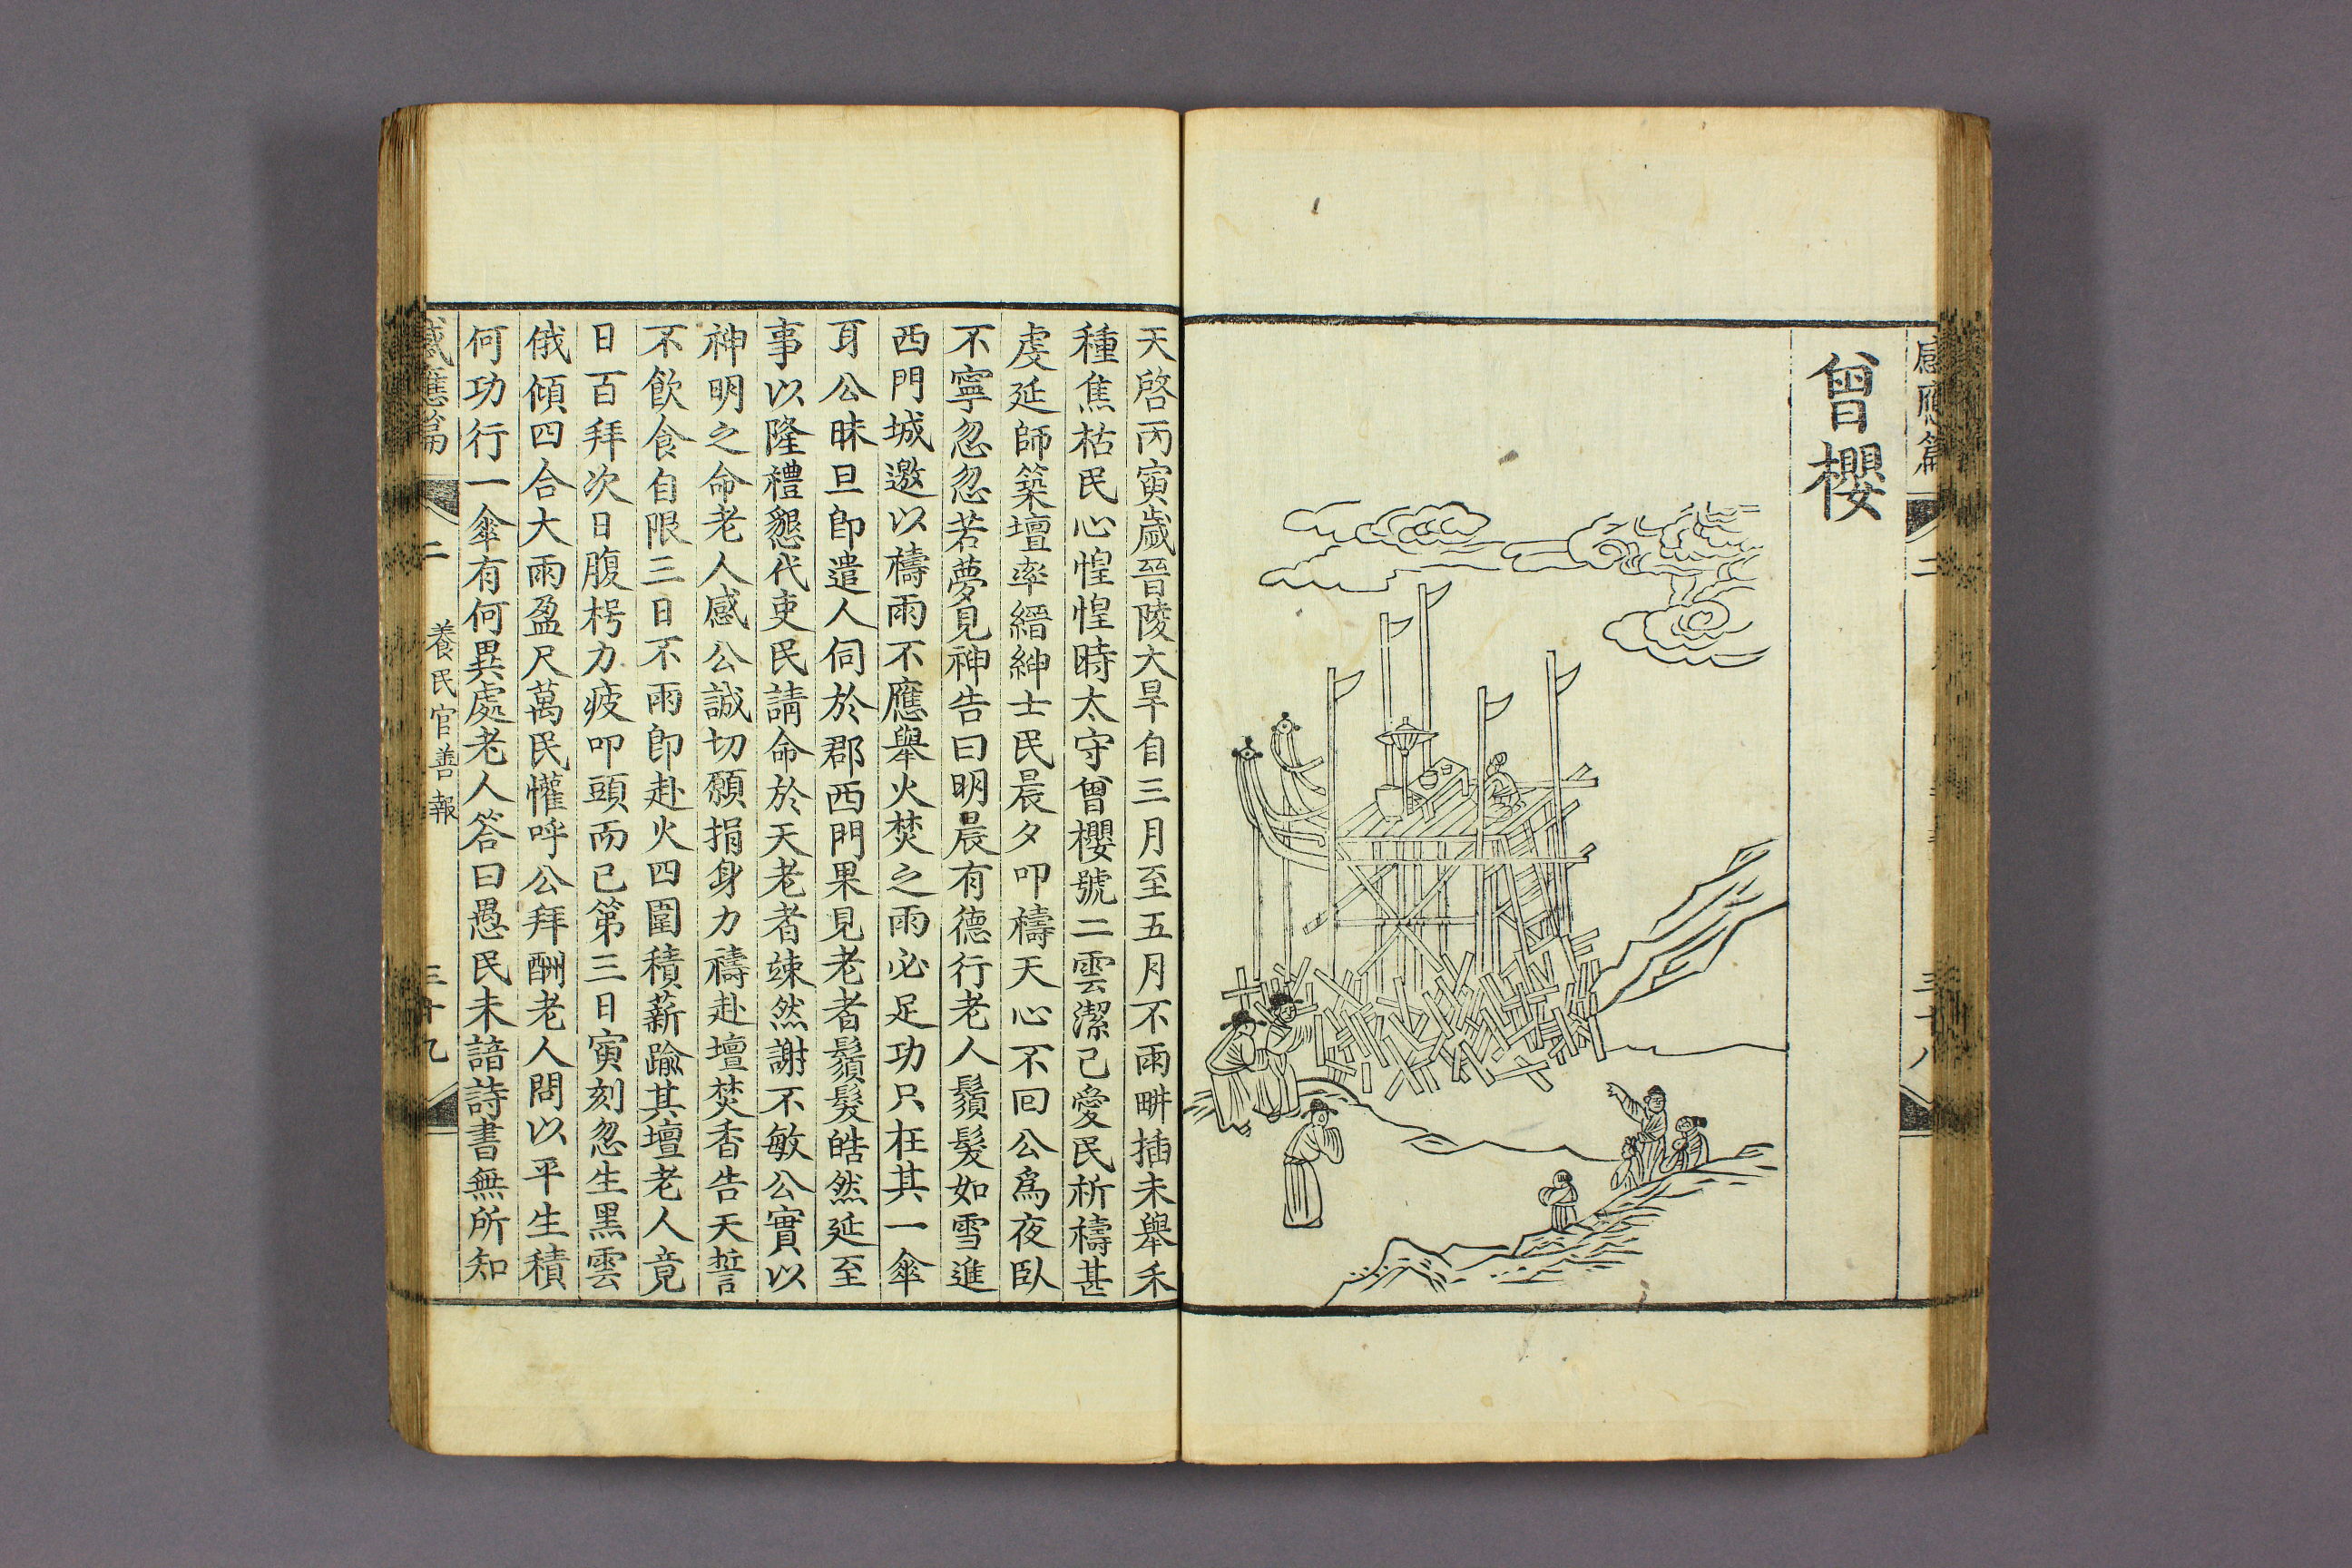 感應篇
二
三十八
曾櫻
天啓丙寅歲晉陵大旱自三月至五月不雨畊插未舉禾
種焦枯民心惶惶時太守曾櫻號二雲潔己愛民祈禱甚
虔延師築壇率縉紳士民晨夕叩禱天心不回公爲夜臥
不寧忽忽若夢見神告曰明晨有德行老人鬚髮如雪進
西門城邀以禱雨不應舉火焚之雨必足功只枉其一傘
耳公昧旦卽遣人伺於郡西門果見老者鬚髮皓然延至
事以隆禮懇代吏民請命於天老者竦然謝不敏公實以
神明之命老人感公誠切願捐身力禱赴壇焚香告天誓
不飲食自限三日不雨卽赴火四圍積薪踰其壇老人竟
日百拜次日腹枵力疲叩頭而已第三日寅刻忽生黑雲
俄傾四合大雨盈尺萬民懽呼公拜酬老人問以平生積
何功行一傘有何異處老人答曰愚民未諳詩書無所知
感應篇
二
養民官善報
三十九